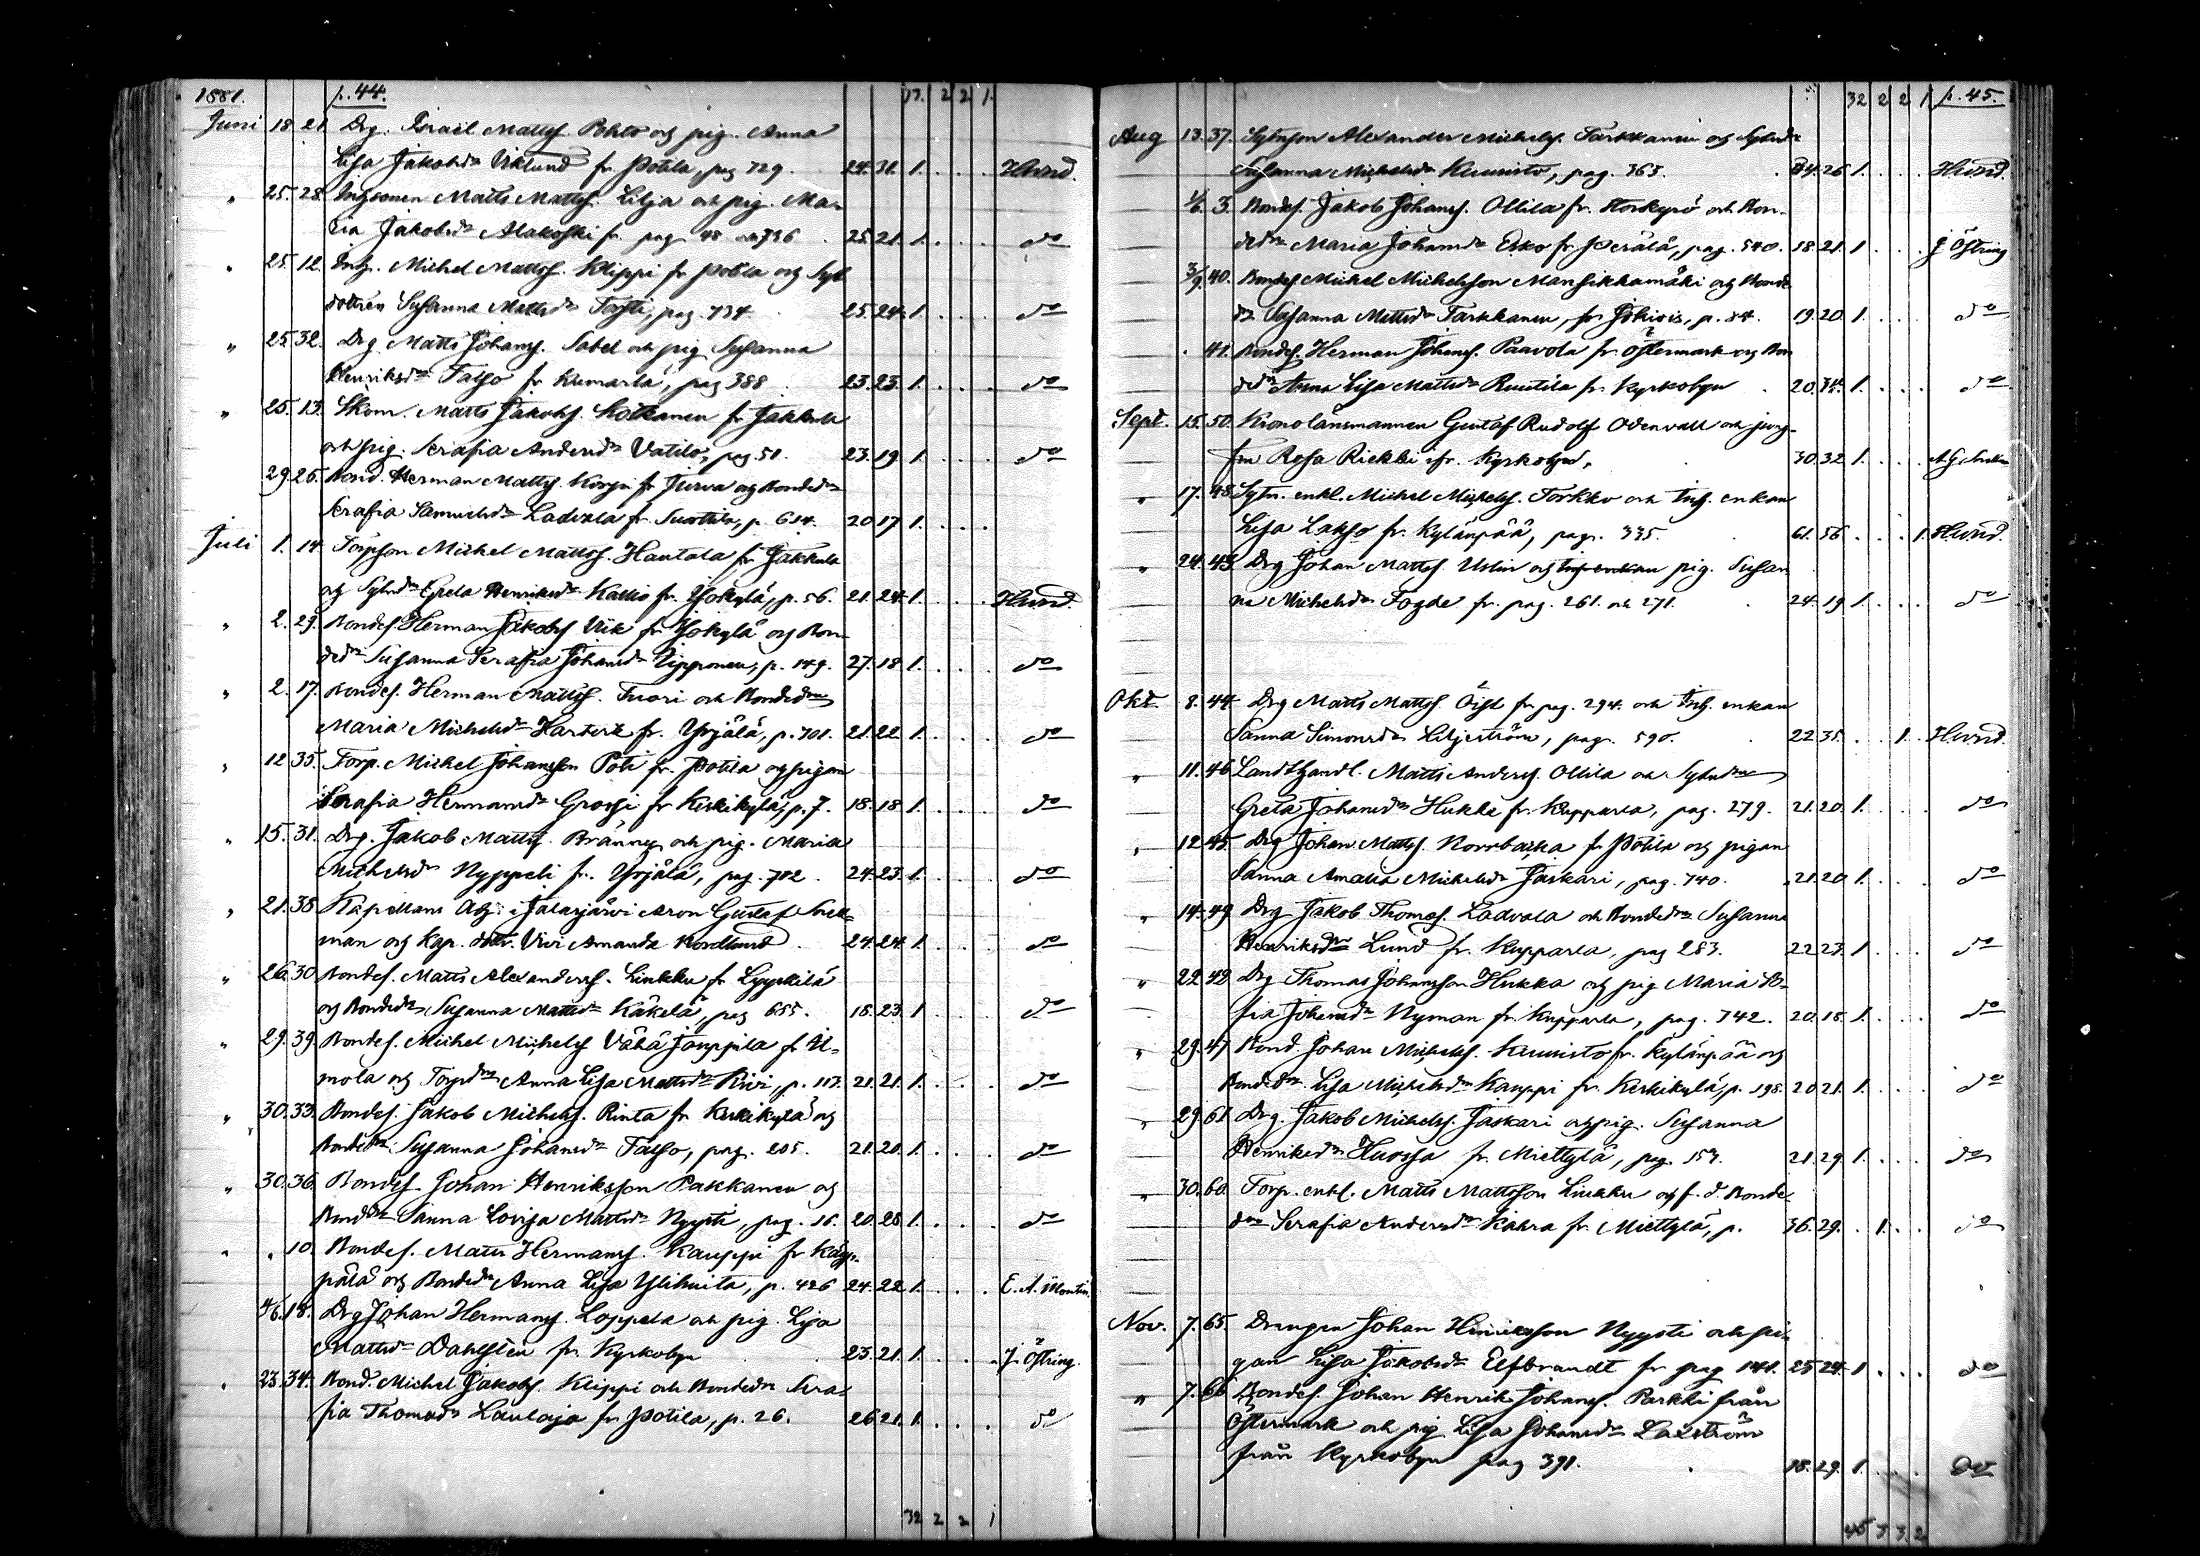 1881. p. 44. 17. 2 2 1.
Juni 18. 21. Drg. Israel Mattss. Pohto och pig. Anna
Lisa Jakobsdr Viklund fr. Potila, pag 729. 24. 31. 1. . . . Hwnd.
" 25. 28. Inhysonen Matts Mattss. Lilja och pig. Ma-
ria Jakobsdr Alakoski fr. pag. 48 och 736. 25. 21. 1. . . . do
" 25. 12. Inh. Michel Mattss. Klippi fr Potila och Syt
dottren Susanna Mattsdr Torsti, pag. 734. 25. 24. 1. . . . do
" 25. 32. Drg. Matts Johanss. Sabel och pig Susanna
Henriksdr Talso fr Kumarla, pag 388 23. 23. 1. . . . do
" 25. 13. Skom. Matts Jakobs. Kotkanen fr Jakkula
och pig. Serafia Andersdr Vatilo, pag. 51. 23. 19 1. . . . do
29. 26. Bond. Herman Mattss. Korpi fr Jurva och Bondedr
Serafia Samuelsdr Ladvala fr. Suottila, p. 614. 20 17 1. . . .
Juli 1. 14. Torpson Michel Mattss. Hautala fr Jakkula
och Sytnsdr Greta Henriksdr Kallio fr. Yokylä, p. 56. 21. 24. 1. . . . Hwnd.
" 2. 29. Bondes. Herman Jakobss Vik fr Yokylä och Bon-
dedr Susanna Serafia Johansdr Tipponen, p. 149. 27. 18. 1. . . . do
" 2. 17. Bondes. Herman Mattss. Tuori och Bondedr
Maria Michelsdr Harterk fr. Yrjälä, p. 701. 21. 22 1. . . . do
" 12 35. Torp. Michel Johansson Poti fr. Potila och pigan
Serafia Hermansdr Grossi fr Keskikylä, p. 7. 18. 18 1. . . . do
" 15. 31. Drg. Jakob Mattss. Bränny och pig. Maria
Michelsdr Nyppeli fr. Yrjälä, pag. 702. 24. 23. 1. . . . do
" 21. 38 Kapellans Adj. i Jalasjärvi Aron Gustaf Snell-
man och Kap. dottr. Vivi Amanda Nordlund. 24. 24. 1. . . . do
" 26. 30 Bondes. Matts Alexanderss. Linkku fr Lyyskilä
och Bondedr Susanna Mattsdr Käkelä, pag 685. 18. 23. 1 . . . do
" 29. 39. Bondes. Michel Michelss Vähä Jouppila fr U-
mola och Torpdr Anna Lisa Mattsdr Kivi, p. 117. 21. 21. 1. . . . do
" 30. 33. Bondes. Jakob Michelss. Rinta fr Keskikylä och
Bondedr Susanna Johansdr Talso, pag. 205. 21. 20. 1. . . . do
" 30. 36. Bondes. Johan Henriksson Pakkanen och
Bondedr Sanna Lovisa Mattsdr Nyysti, pag. 16. 20. 28 1. . . . do
" " 10. Bondes. Matts Hermanss. Kauppi fr Käp-
pälä och Bondedr Anna Lisa Ylihuita, p. 426 24. 22 1. . . . E. A. Montin.
4/6. 18. Drg Johan Hermanss. Loppela och pig. Lisa
Mattsdr Dahlsten fr. Kyrkobyn 23. 21. 1. . . . J. Östring.
" 23. 34. Bond. Michel Jakobss. Klippi och Bondedr Sera-
fia Thomasdr Laulaja fr Potila, p. 26. 26. 21. 1. . . . do
32 2 2 1
32 2 2 1 p. 45.
Aug 13. 37. Sytnson Alexander Michelss. Tarkkanen och Sytndr
Susanna Michelsdr Kuunisto, pag. 363. 34. 26 1. . . . Hwnd.
1/6. 3. Bondes. Jakob Johanss. Ollila fr. Storkyrö och Bon-
dedr Maria Johansdr Esko fr Perälä, pag. 540. 18. 21. 1 . . . J Östring
3/9. 40. Bondes Michel Michelsson Mansikkamäki och Bonde
dr Susanna Mattsdr Tarkkanen, fr Jokivis, p. 84. 19. 20 1. . . . do
41. Bondes. Herman Johanss. Paavola fr. Östermark och Bon
dedr Anna Lisa Mattsdr Ruutila fr. Kyrkobyn 20. 34. 1. . . . do
Sept. 15. 50. Kronolänsmannen Gustaf Rudolf Odenvall och jung-
frun Rosa Riekki ifr. Kyrkobyn, 30. 32 1. . . .
" 17. 48 Sytn. enkl. Michel Michelss. Torkko och Inh. enkan
Lisa Lakso fr. Kylänpää, pag. 335. 61. 56 . . . 1. Hwnd.
" 24. 43 Drg Johan Mattss. Uslin och Inh enkan pig. Susan-
na Michelsdr Fogde fr. pag. 261. och 271. 24. 19 1. . . . do
Okt. 8. 44 Drg Matts Mattss. Öist fr. pag. 294. och Inh. enkan
Sanna Simonsdr Liljeström, pag. 590. 22 35. . . 1. . Hwnd.
" 11. 46 Landthandl. Matts Anderss. Ollila och Sytndr
Greta Johansdr Hukka fr. Kupparla, pag. 279. 21. 20. 1. . . . do
" 12 45. Drg Johan Mattss. Norrbacka fr Potila och pigan
Sanna Amalia Michelsdr Jaskari, pag. 740. 21. 20 1. . . . do
" 14. 49 Drg Jakob Thomass. Ladvala och Bondedr Susanna
Henriksdr Lund fr. Kupparla, pag 283. 22 23. 1. . . . do
" 22 42 Drg Thomas Johansson Hukka och pig Maria So-
fia Johansdr Nyman fr. Kupparla, pag. 742. 20. 18. 1. . . . do
" 29. 47 Bond. Johan Michelss. Kuunisto fr. Kylänpää och
Bondedr. Lisa Michelsdr Kauppi fr. Keskikylä, p. 198. 20 21. 1. . . . do
" 29. 61 Drg. Jakob Michelss. Jaskari och pig. Susanna
Henriksdr Huossa fr. Miettylä, pag. 153. 21. 29 1. . . . do
" 30. 60. Torp. enkl. Matts Mattsson Linkku och f. d. Bonde
drn Serafia Andersdr Kahra fr. Miettylä, p. 36. 29. . 1. . . do
Nov. 7. 65. Drengen Johan Hinriksson Nyysti och pi-
gan Lisa Jakobsdr Elfbrandt fr pag 141. 25 24. 1 . . . do
" 7. 66 Bondes. Johan Henrik Johanss. Parkki från
Östermark och pig Lisa Johansdr Laxström
från Kyrkobyn pag 391. 18. 29. 1. . . . do
45 3 3 2